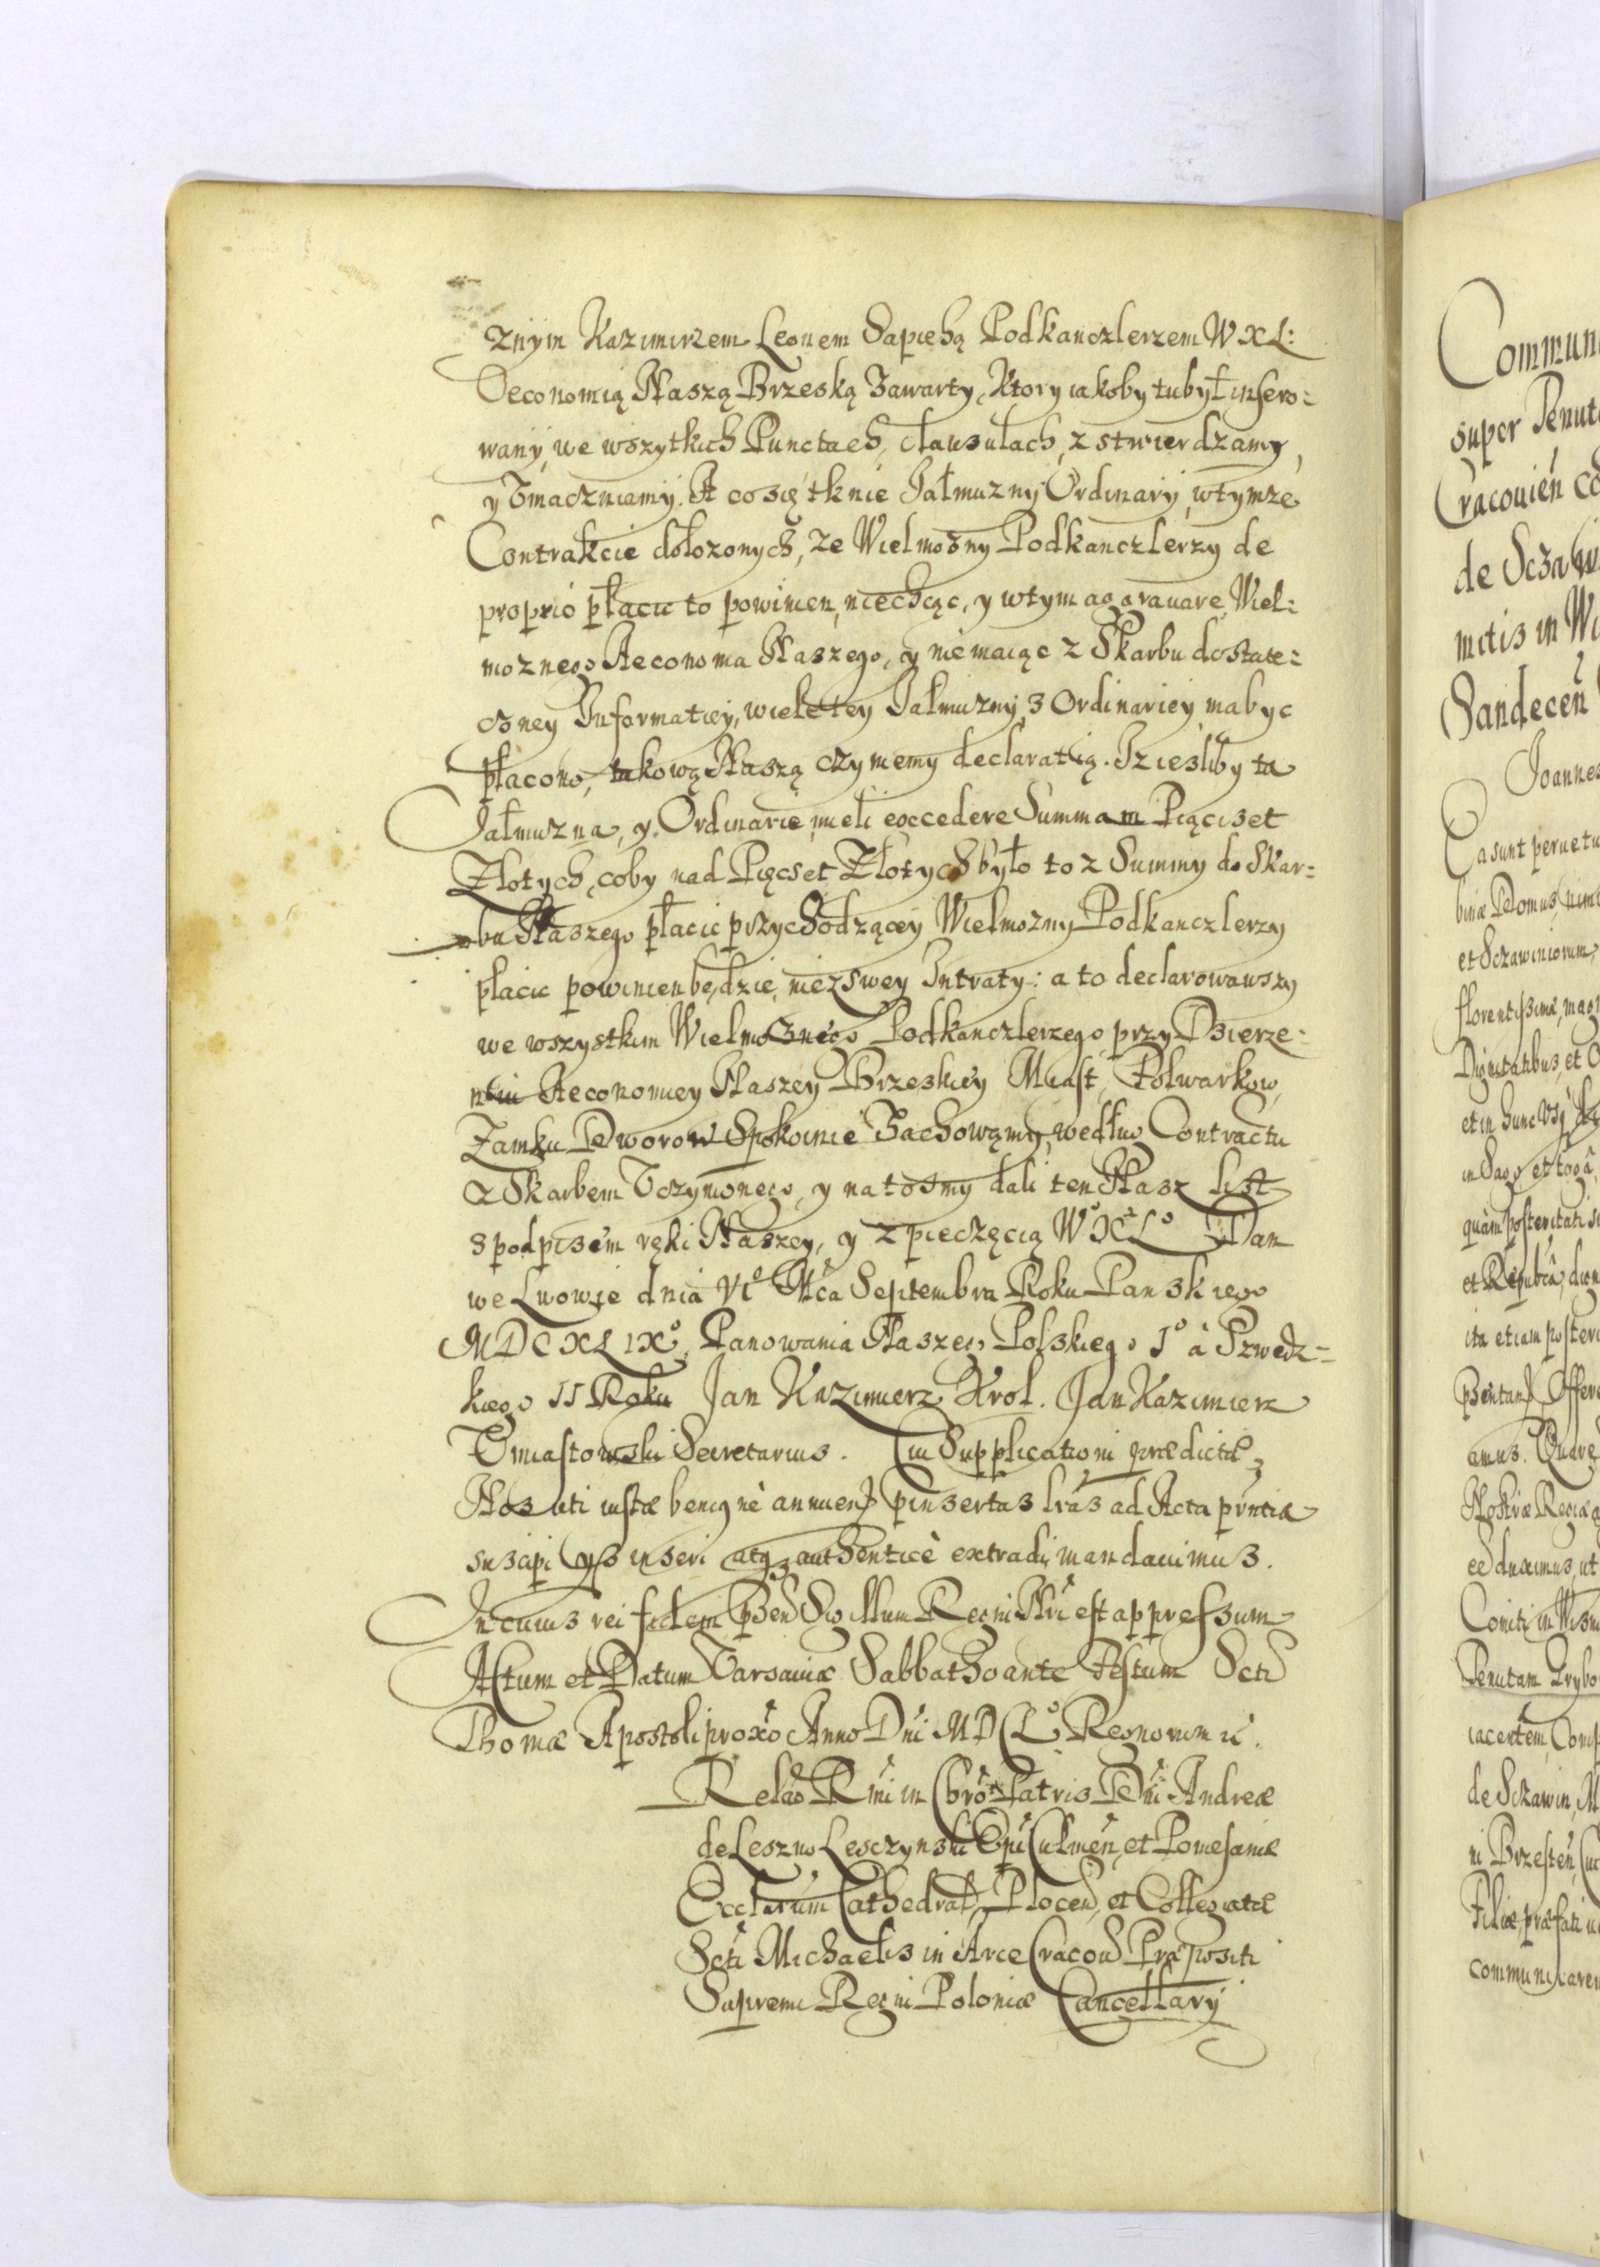 znym Kazimirzem Leonem Sapiehą Podkanczlerzem W X L:
Oeconomią Naszą Brzeską Zawarty, Ktory iakoby tu był insero=
wany, we wszytkich Punctach, clausulach, z stwierdzamy,
y Zmaczniamy. A co się tknie Jałmuzny Ordinary, w tymze
Contrakcie dołozonych, ze Wielmozny Podkanczlerzy de
proprio płacic to powinien, niechcąc, y w tym aggravare Wiel=
moznego Aeconoma Naszego, y nie maiąc z Skarbu dostate=
czney Informatiey, wiele tey Jałmuzny, z Ordinariey ma byc
płacono, takową Naszą czyniemy declaratią. Iz iesliby ta
Jałmuzna, y Ordinarie, mieli excedere Summam Piąciset
Złotych, coby nad Pięcset Złotych było to z Summy do Skar=
bu Naszego płacic przychodzącey, Wielmozny Podkanczlerzy
płacic powinien będzie, nie z swey Intraty: a to declarowawszy
we wszystkim Wielmoznego Podkanczlerzego przy Dzierze=
niu Aeconomiey Naszey Brzeskiey Miast, Folwarkow,
Zamku Dworow Spokoinie Zachowąmy, według Contractu
z Skarbem Vczynionego, y na tosmy dali ten Nasz list
s podpisem ręki Naszey, y z pieczęcią W° X° L° Dan
we Lwowie dnia VI° Mca Septembra Roku Panskiego
MDCXLIX°, Panowania Naszego Polskiego I° à Szwedz=
kiego II Roku Jan Kazimierz Krol. Jan Kazimierz
Vmiastowski Secretarius. Cui Supplicationi prædictæ
Nos uti iustæ benignè annuen pinsertas lras ad Acta pntia
suscipi ijs inseri atq3 authenticè extradi mandauimus.
In cuius rei fidem psen Sigillum Regni Nri est appressum
Actum et Datum Varsaviæ Sabbatho ante Festum Scti
Thomæ Apostoli proxo Anno Dni MDCL° Regnorum
Relao Rmi in Chro Patris Dni Andreæ
de Leszno Lesczynski Epi Culmen, et Pomesaniæ
Eccliarum Cathedral Plocen, et Collegiatæ
Scti Michaelis in Arce Cracou Præpositi
Supremi Regni Poloniæ Cancellary
Commun
super Tenut
Cracouien
de Scza
mitis in
Sandecen
Joannes
binæ Domus
et Sczawiniorum,
Dignitatibus, et
in Sago et toga
quam posteritati
ita etiam
amus. Quare
Nostræ Regiæ
ut
Tenutam Grybo
de Sczawin, M
ni Brzesten,
Filiæ, præfati
communicare